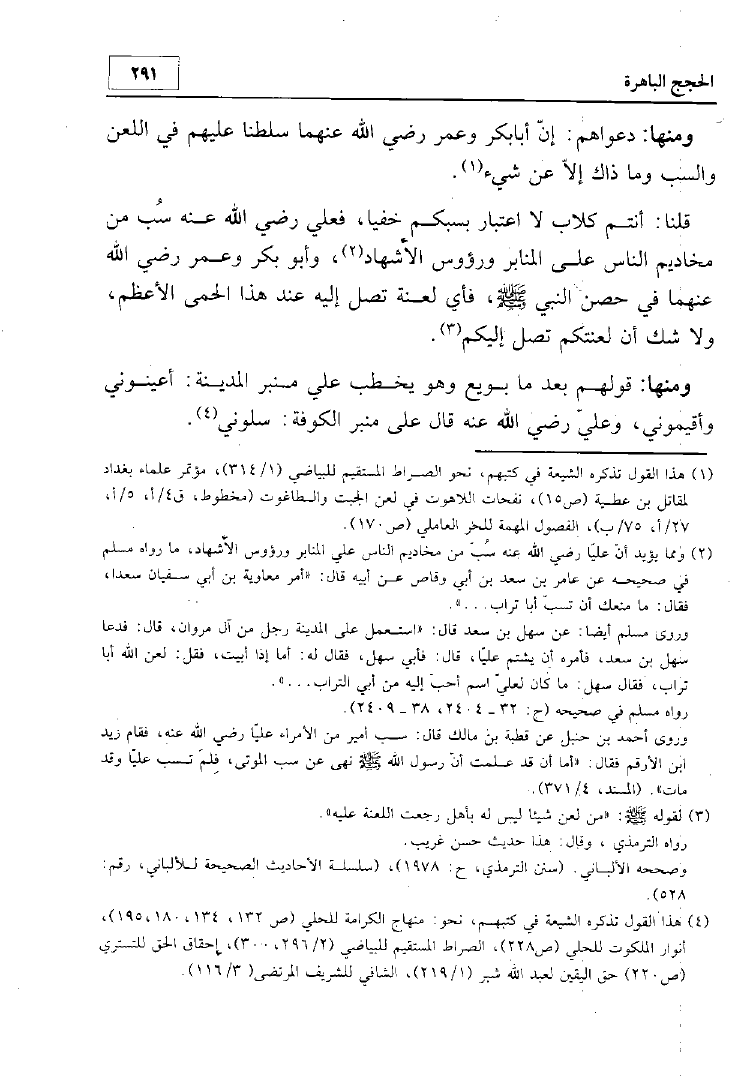 الحجج الباهرة
٢٩١
ومنها: دعواهم: إنّ أبابكر وعمر رضي الله عنهما سلطنا عليهم في اللعن
والسب وما ذاك إلاّ عن شيء(١).
قلنا: أنتم كلاب لا اعتبار بسبكم خفيا، فعلي رضي الله عنه سُب من
مخاديم الناس على المنابر ورؤوس الأشهاد(٢)، وأبو بكر وعمر رضي الله
عنهما في حصن النبي ﷺ، فأي لعنة تصل إليه عند هذا الحمى الأعظم،
ولا شك أن لعنتكم تصل إليكم(٣).
ومنها: قولهم بعد ما بويع وهو يخطب علي منبر المدينة: أعينوني
وأقيموني، وعليّ رضي الله عنه قال على منبر الكوفة: سلوني(٤).
(١) هذا القول تذكره الشيعة في كتبهم، نحو الصراط المستقيم للبياضي (٣١٤/١)، مؤتمر علماء بغداد
لمقاتل بن عطية (ص١٥)، نفحات اللاهوت في لعن الجبت والطاغوت (مخطوط، ق٤/أ، ٥/أ،
٢٧/أ، ٧٥/ب)، الفصول المهمة للحر العاملي (ص١٧٠).
(٢) ومما يؤيد أنّ عليًا رضي الله عنه سُبّ من مخاديم الناس علي المنابر ورؤوس الأشهاد، ما رواه مسلم
في صحيحه عن عامر بن سعد بن أبي وقاص عن أبيه قال: «أمر معاوية بن أبي سفيان سعدا،
فقال: ما منعك أن تسبّ أبا تراب...».
وروى مسلم أيضا: عن سهل بن سعد قال: «استعمل على المدينة رجل من آل مروان، قال: فدعا
سهل بن سعد، فأمره أن يشتم عليًا، قال: فأبي سهل، فقال له: أما إذا أبيت، فقل: لعن الله أبا
تراب، فقال سهل: ما كان لعليّ اسم أحبّ إليه من أبي التراب...».
رواه مسلم في صحيحه (ح: ٣٢ـ ٢٤٠٤، ٣٨ ـ ٢٤٠٩).
وروى أحمد بن حنبل عن قطبة بن مالك قال: سب أمير من الأمراء عليًا رضي الله عنه، فقام زيد
ابن الأرقم فقال: «أما أن قد علمت أنّ رسول الله ﷺ نهى عن سب الموتى، فلمَ تسب عليًا وقد
مات». (المسند، ٣٧١/٤).
(٣) لقوله ﷺ: «من لعن شيئا ليس له بأهل رجعت اللعنة عليه».
رواه الترمذي ، وقال: هذا حديث حسن غريب.
وصححه الألباني. (سنن الترمذي، ح: ١٩٧٨)، (سلسلة الأحاديث الصحيحة للألباني، رقم:
٥٢٨).
(٤) هذا القول تذكره الشيعة في كتبهم، نحو: منهاج الكرامة للحلي (ص ١٣٢، ١٣٤، ١٨٠، ١٩٥)،
أنوار الملكوت للحلي (ص٢٢٨)، الصراط المستقيم للبياضي (٢٩٦/٢، ٣٠٠)، إحقاق الحق للتستري
(ص٢٢٠) حق اليقين لعبد الله شبر (٢١٩/١)، الشافي للشريف المرتضى( ١١٦/٣).